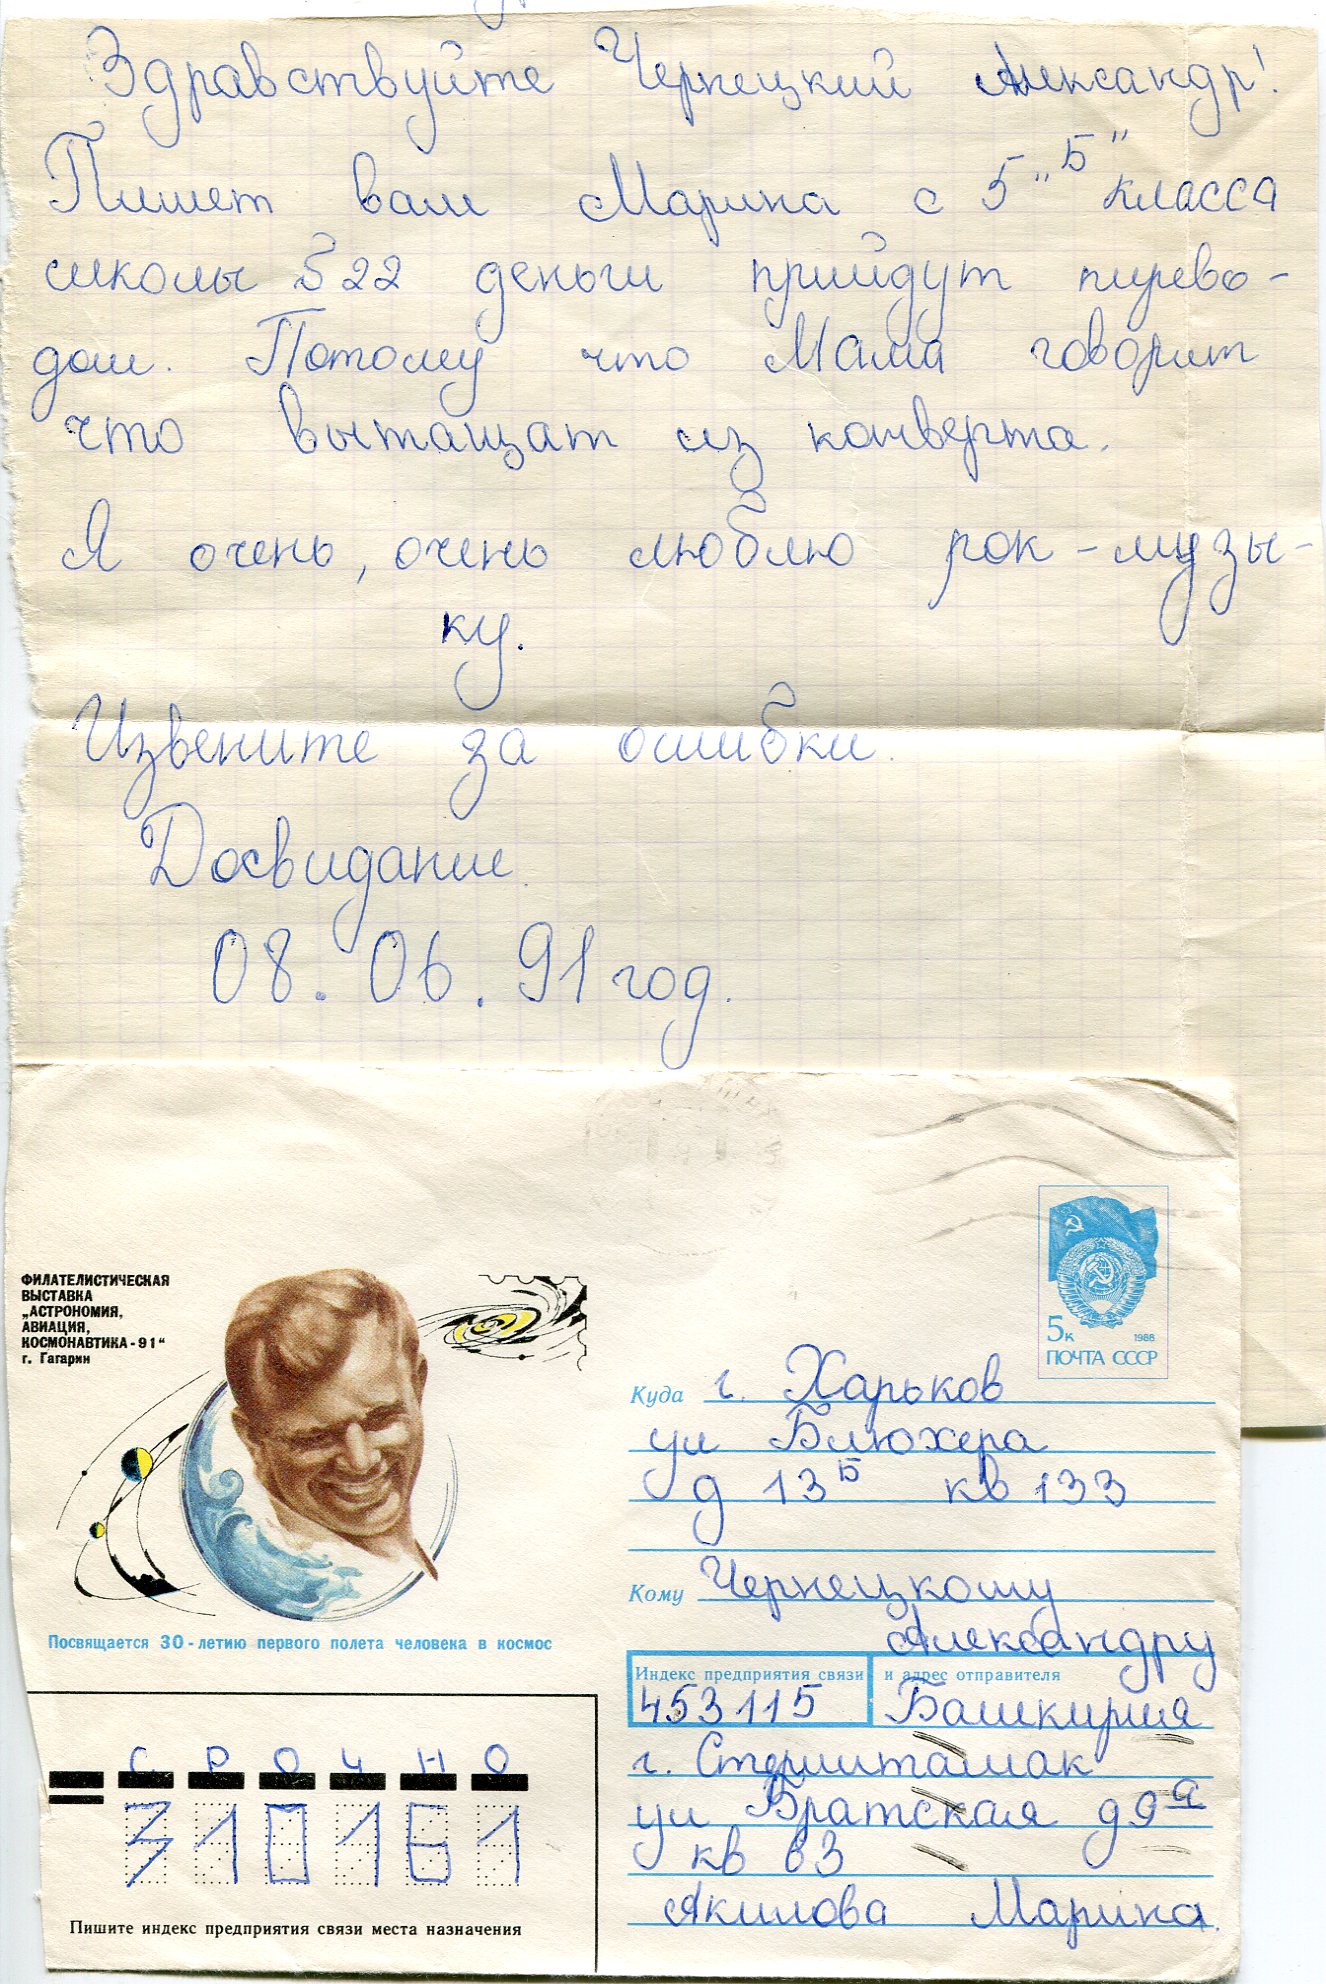 Здравствуйте Чернецкий Александр!
Пишет вам Марина с 5 "Б" класса
школы 522 деньги прийдут пирево-
дом. Потому что Мама говорит
что вытащат из конверта.
Я очень, очень люблю рок-музы-
ку.
Извените за ошибки.
Досвидание.
08.06.91 год.
ФИЛАТЕЛИСТИЧЕСКАЯ
ВЫСТАВКА
„АСТРОНОМИЯ,
АВИАЦИЯ,
КОСМОНАВТИКА-91“
г. Гагарин
Посвящается 30-летию первого полета человека в космос
5к 1988
ПОЧТА СССР
Куда г. Харьков
ул Блюхера
д 13Б кв 133
Кому Чернецкому
Александру
Индекс предприятия связи и адрес отправителя
453115 Башкирия
г. Стерлитамак
ул Братская д 9а
кв 63
Акилова Марина.
СРОЧНО
310161
Пишите индекс предприятия связи места назначения